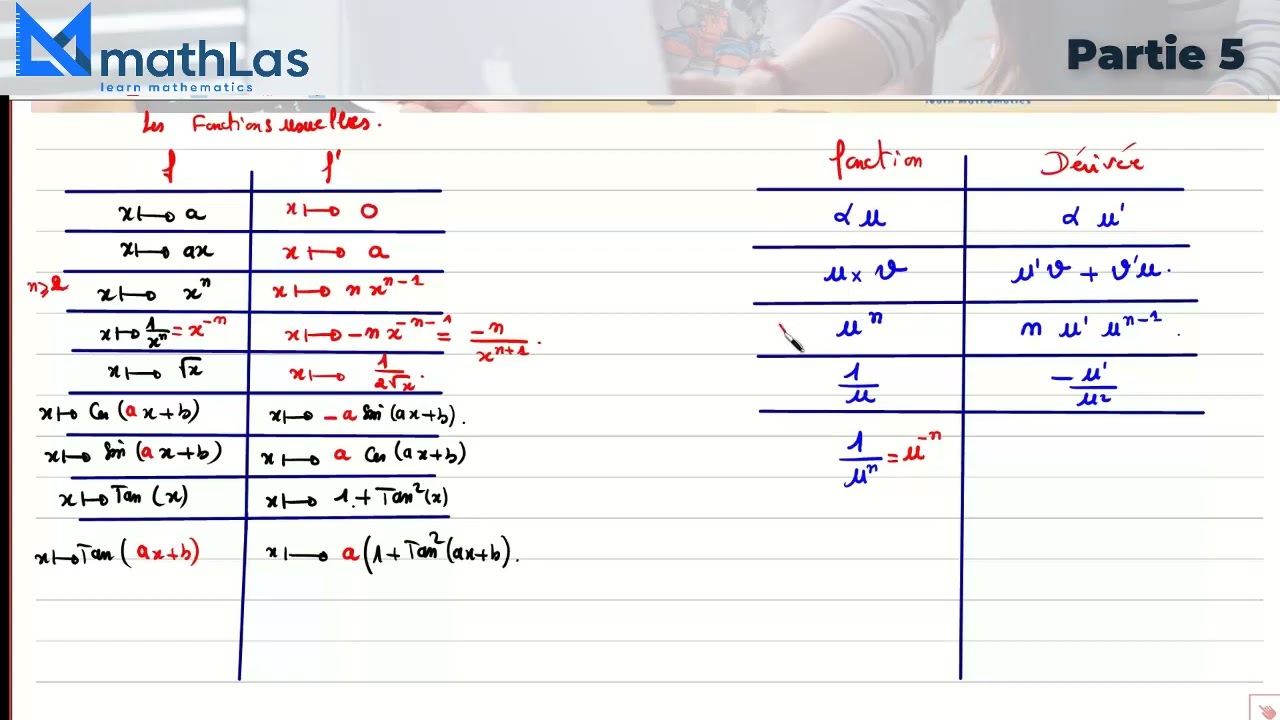 mathLas
learn mathematics
Partie 5
learn mathematics
Les Fonctions usuelles.
f f'
x ⟼ a x ⟼ 0
x ⟼ ax x ⟼ a
n⩾2 x ⟼ xⁿ x ⟼ n xⁿ⁻¹
x ⟼ 1/xⁿ = x⁻ⁿ x ⟼ -n x⁻ⁿ⁻¹ = -n/xⁿ⁺¹.
x ⟼ √x x ⟼ 1/2√x.
x ⟼ Cos(ax+b) x ⟼ -a Sin(ax+b).
x ⟼ Sin(ax+b) x ⟼ a Cos(ax+b)
x ⟼ Tan(x) x ⟼ 1+Tan²(x)
x ⟼ Tan(ax+b) x ⟼ a(1+Tan²(ax+b).
fonction Dérivée
αu αu'
u×v u'v + v'u.
uⁿ n u' uⁿ⁻¹.
1/u -u'/u²
1/uⁿ = u⁻ⁿ